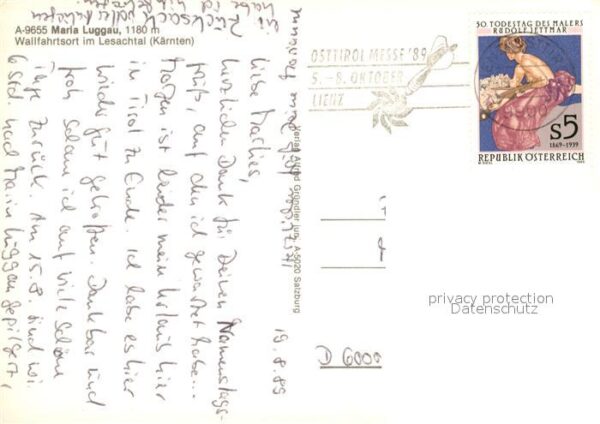 A-9655 Maria Luggau, 1180 m
Wallfahrtsort im Lesachtal (Kärnten)
19.8.89
Liebe Marlies,
herzlichen Dank für Deinen Namenstags-
gruß, auf den ich gewartet habe...
Morgen ist leider mein Urlaub hier
in Tirol zu Ende. Ich habe es hier
wieder gut getroffen. Dankbar und
froh schau ich auf viele schöne
Tage zurück. Am 15.8. sind wir
6 Std. nach Maria Luggau gepilgert,
Verlag Alfred Gründler jun. A-5020 Salzburg
OSTTIROL MESSE '89
5.-8. OKTOBER
LIENZ
50. TODESTAG DES MALERS
RUDOLF JETTMAR
S5
1869-1939
REPUBLIK ÖSTERREICH
D 6000
privacy protection
Datenschutz